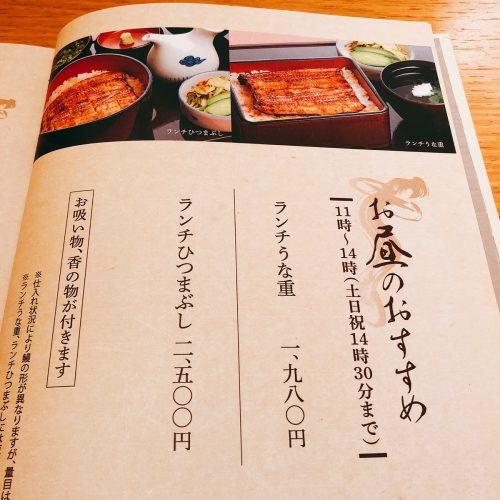 ランチひつまぶし
ランチうな重
お昼のおすすめ
11時～14時(土日祝14時30分まで)
ランチうな重 一、九八〇円
ランチひつまぶし 二、五〇〇円
お吸い物、香の物が付きます
※仕入れ状況により鰻の形が異なりますが、量目は
※ランチうな重、ランチひつまぶしには